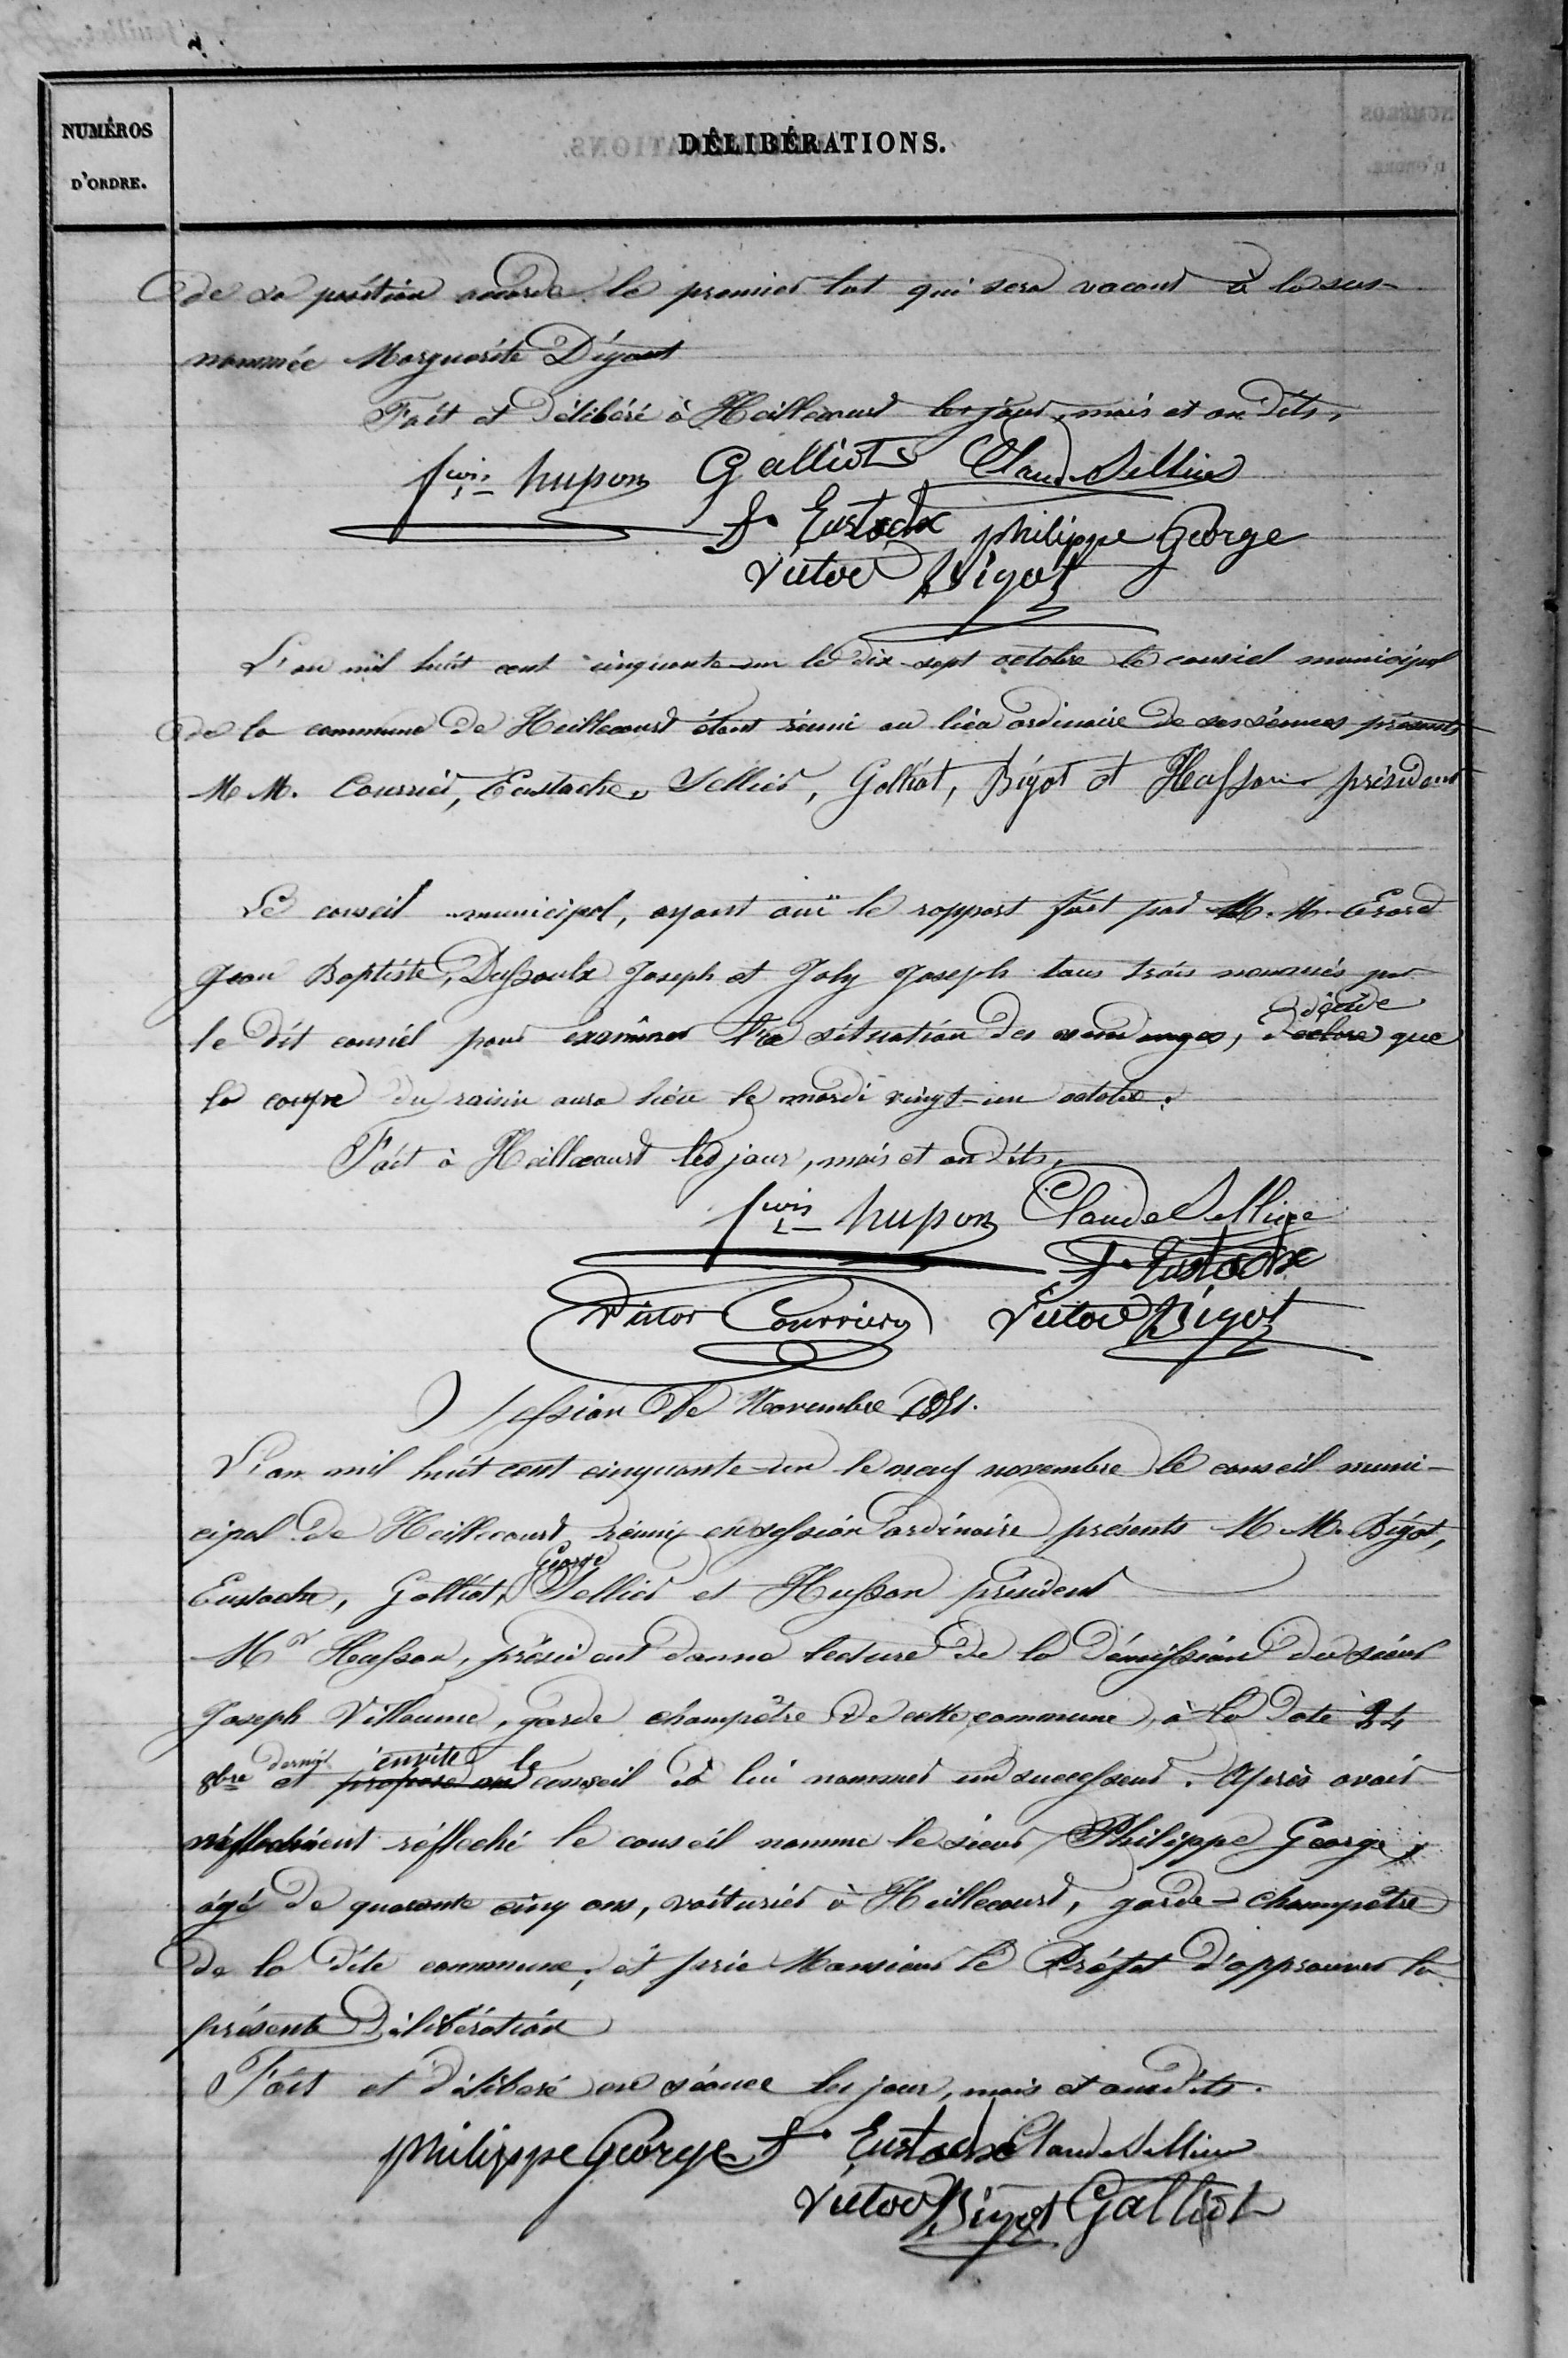 NUMÉROS
D'ORDRE.
DÉLIBÉRATIONS.
de sa position accorde le premier lot qui sera vacant à la sus-
nommée Marguerite Digout
Fait et délibéré à Heillecourt les jour, mois et an dits,
fcois hupon Galliot Claude Sellier
F. Eustache philippe George
Victor Bigot
L'an mil huit cent cinquante-un le dix-sept octobre le conseil municipal
de la commune de Heillecourt étant réuni au lieu ordinaire de ses séances présents
M M. Courrier, Eustache, Sellier, Galliot, Bigot et Husson président
Le conseil municipal, ayant ouï le rapport fait par M. M. Erard
Jean Baptiste, Dussoulx Joseph et Joly Joseph tous trois nommés par
le dit conseil pour examiner la situation des vendanges, déclare décide que
la coupe du raisin aura lieu le mardi vingt-un octobre.
Fait à Heillecourt les jour, mois et an dits,
fcois hupon Claude Sellier
F. Eustache
Victor Courrier Victor Bigot
Session de Novembre 1851.
L'an mil huit cent cinquante-un le neuf novembre le conseil muni-
cipal de Heillecourt réuni en session ordinaire présents M M. Bigot,
Eustache, Galliot, George Sellier et Husson président
Mr Husson, président donne lecture de la démission du sieur
Joseph Villaume, garde champêtre de cette commune, à la date 24
8bre dernier et propose au invite le conseil à lui nommer un successeur. Après avoir
réflechi le conseil nomme le sieur Philippe George,
âgé de quarante cinq ans, voiturier à Heillecourt, garde-champêtre
de la dite commune, et prie Monsieur le Préfet d'approuver la
présente délibération
Fait et délibéré en séance les jour, mois et an dits.
philippe George F. Eustache Claude Sellier
Victor Bigot Galliot